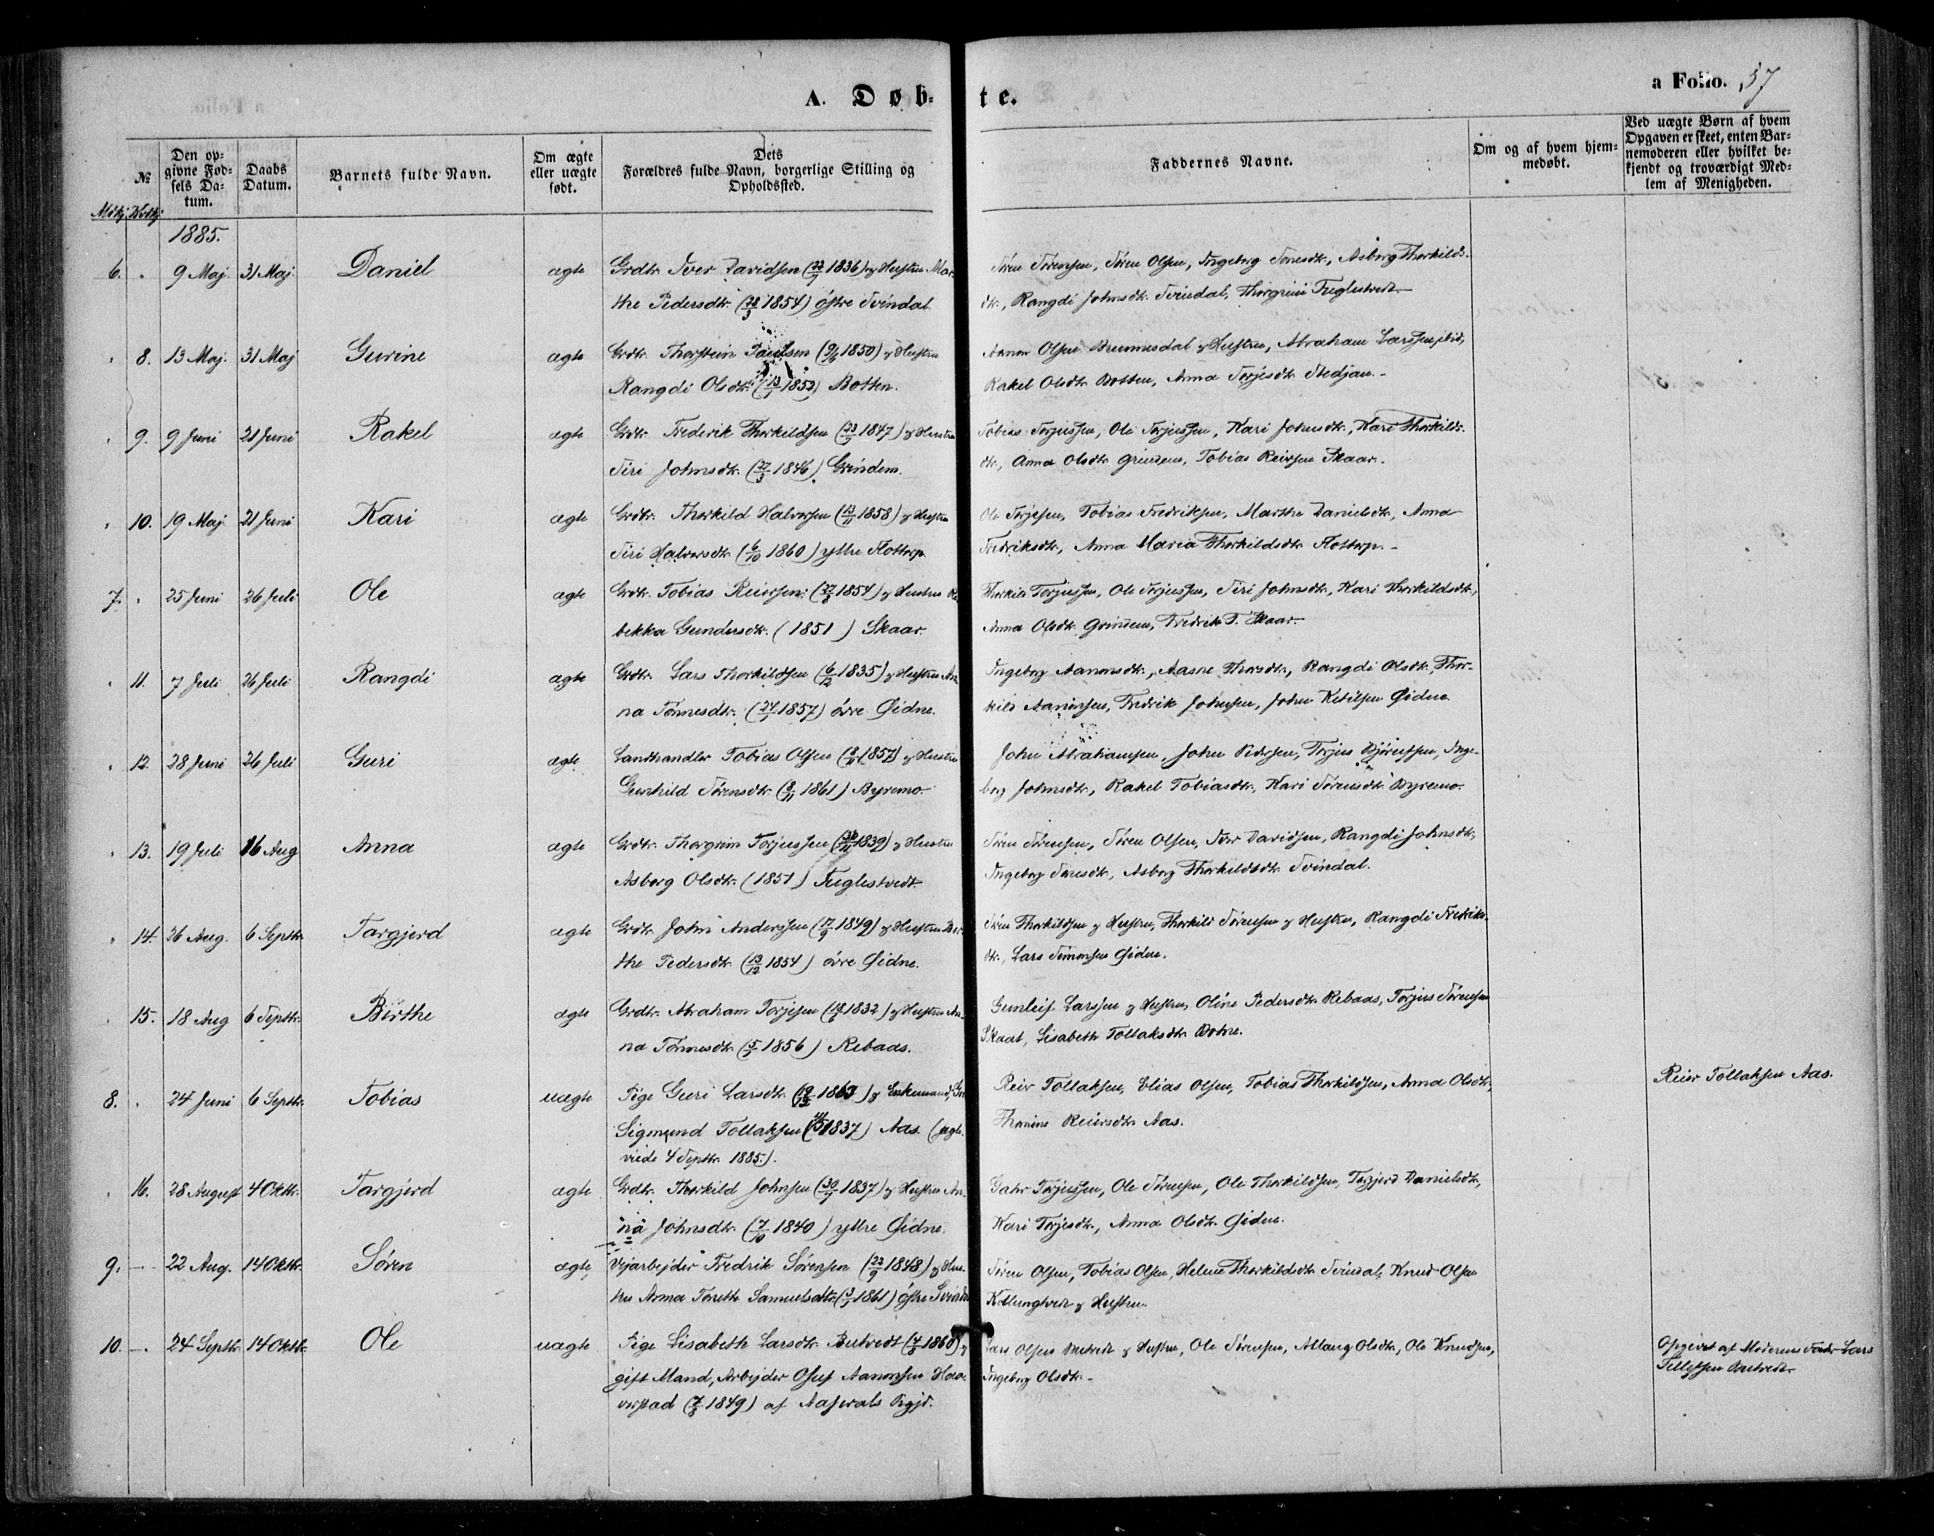 A. Døb- te.
a Folio. 57
№
Mdkj. Kvdkj.
Den op-
givne Fød-
sels Da-
tum.
Daabs
Datum.
Barnets fulde Navn.
Om ægte
eller uægte
født.
Dets
Forældres fulde Navn, borgerlige Stilling og
Opholdssted.
Faddernes Navne.
Om og af hvem hjem-
medøbt.
Ved uægte Børn af hvem
Opgaven er skeet, enten Bar-
nemoderen eller hvilket be-
kjendt og troværdigt Med-
lem af Menigheden.
1885.
6. 9 Maj. 31 Maj. Daniel ægte Grdbr. Iver Davidsen (1836) og Hustru Mar-
the Pedersdtr. (1854) østre Sveindal.
Søren Sørensen, Søren Olsen, Ingeborg Tonesdtr., Asborg Thorkilds-
dtr., Rangdi Johnsdtr. Sveindal, Thorgrim Fuglestvedt.
8. 13 Maj. 31 Maj Gurine ægte Grdbr. Thorstein Paulsen (9/6 1850) og Hustru
Rangdi Olsdtr. (1853) Botten.
Aanon Olsen Brunnesdal og Hustru, Abraham Larssen ibid,
Rakel Olsdtr. Botten, Anna Torjesdtr. Stedjan.
9. 9 Juni 21 Juni Rakel ægte Grdbr. Frederik Thorkildsen (1847) og Hustru
Siri Johnsdtr. (27/3 1846) Grindem.
Tobias Torjussen, Ole Torjussen, Kari Johnsdtr., Kari Thorkilds-
dtr., Anna Olsdtr. Grindem, Tobias Reiersen Skaar.
10. 19 Maj. 21 Juni Kari ægte Grdbr. Thorkild Halvorsen (1858) og Hustru
Siri Halvorsdtr. (6/10 1860) ytre Flottorp.
Ole Torjesen, Tobias Fredriksen, Marthe Danielsdtr., Anna
Fredriksdtr., Anna Maria Thorkildsdtr. Flottorp.
7. 25 Juni 26 Juli Ole ægte Grdbr. Tobias Reiersen (1854) og Hustru Re-
bekka Gundersdtr. (1851) Skaar.
Thorkild Torjussen, Ole Torjussen, Siri Johnsdtr., Kari Thorkildsdtr.,
Anna Olsdtr. Grindem, Fredrik T. Skaar.
11. 7 Juli 26 Juli Rangdi ægte Grdbr. Lars Thorkildsen (6/12 1835) og Hustru An-
na Tønnesdtr. (1857) øvre Øidne.
Ingeborg Aanonsdtr., Aasne Thorsdtr., Rangdi Olsdtr., Thor-
kild Aanonsen, Fredrik Johnsen, John Ketilsen Øidne.
12. 28 Juni 26 Juli Guri ægte Landhandler Tobias Olsen (1857) og Hustru
Gunhild Sørensdtr. (1861) Byremo.
John Abrahamsen, John Pedersen, Torjus Bjørnssen, Inge-
borg Johnsdtr., Rakel Tobiasdtr., Kari Sørensdtr. Byremo.
13. 19 Juli 16 Aug Anna ægte Grdbr. Thorgrim Torjussen (1839) og Hustru
Asborg Olsdtr. (1851) Fuglestvedt.
Søren Sørensen, Søren Olsen, Iver Davidsen, Rangdi Johnsdtr.,
Ingeborg Tonesdtr., Asborg Thorkildsdtr. Sveindal.
14. 26 Aug. 6 Septbr. Targjerd ægte Grdbr. John Anderssen (17/9 1849) og Hustru Bir-
the Pedersdtr. (13/12 1854) øvre Øidne.
Søren Thorkildsen og Hustru, Thorkild Sørensen og Hustru, Rangdi Fredriks-
dtr., Lars Simonsen Øidne.
15. 18 Aug 6 Septbr. Birthe ægte Grdbr. Abraham Torjesen (1832) og Hustru An-
na Tønnesdtr. (1856) Rebaas.
Gunleif Larssen og Hustru, Oline Pedersdtr. Rebaas, Torjus Sørensen
Skaar, Lisabeth Tollaksdtr. Botne.
8. 24 Juni 6 Septbr. Tobias uægte Pige Guri Larsdtr. (1863) og Enkemand
Sigmund Tollaksen (1837) Aas. (ægte-
viede 4 Septbr. 1885.).
Reier Tollaksen, Elias Olsen, Tobias Thorkildsen, Anna Olsdtr.,
Thomine Reiersdtr. Aas.
Reier Tollaksen Aas.
16. 28 August 4 Oktbr. Targjerd ægte Grdbr. Thorkild Johnsen (1837) og Hustru An-
na Johnsdtr. (7/10 1840) ytre Øidne.
Gahr Torjussen, Ole Sørensen, Ole Thorkildsen, Torgjerd Danielsdtr.,
Kari Torjesdtr., Anna Olsdtr. Øidne.
9. 22 Aug. 14 Oktbr. Søren ægte Vejarbejder Fredrik Sørensen (22/9 1848) og Hus-
tru Anna Torette Samuelsdtr. (1861) østre Sveindal
Søren Olsen, Tobias Olsen, Helene Thorkildsdtr. Sveindal, Knud Olsen
Kollungtveit og Hustru.
10. 24 Septbr. 14 Oktbr. Ole uægte Pige Lisabeth Larsdtr. Butvedt (1860) og
gift Mand, Arbejder Osuf Aanonsen Haa-
verstad (1849) af Aaserals Prgjd.
Lars Olsen Butvedt og Hustru, Ole Sørensen, Allaug Olsdtr., Ole Knudsen,
Ingeborg Olsdtr.
Opgivet af Moderens Fader Lars
Tellefsen Butvedt.